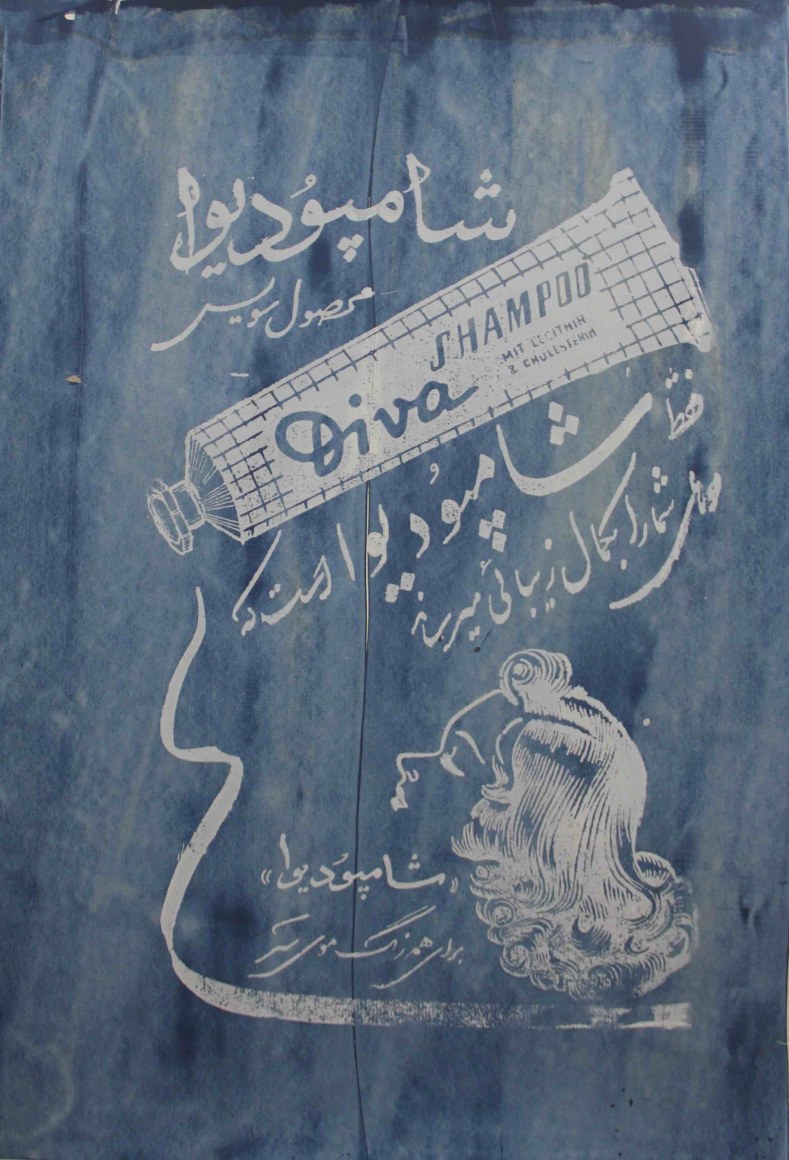 شامپُو دیوا
محصول سویس
SHAMPOO
MIT LECITHIN
& CHOLESTERIN
Diva
فقط
شامپُو دیوا است که
موهای شما را بکمال زیبائی میرساند
«شامپُو دیوا»
برای هر رنگ موی سر